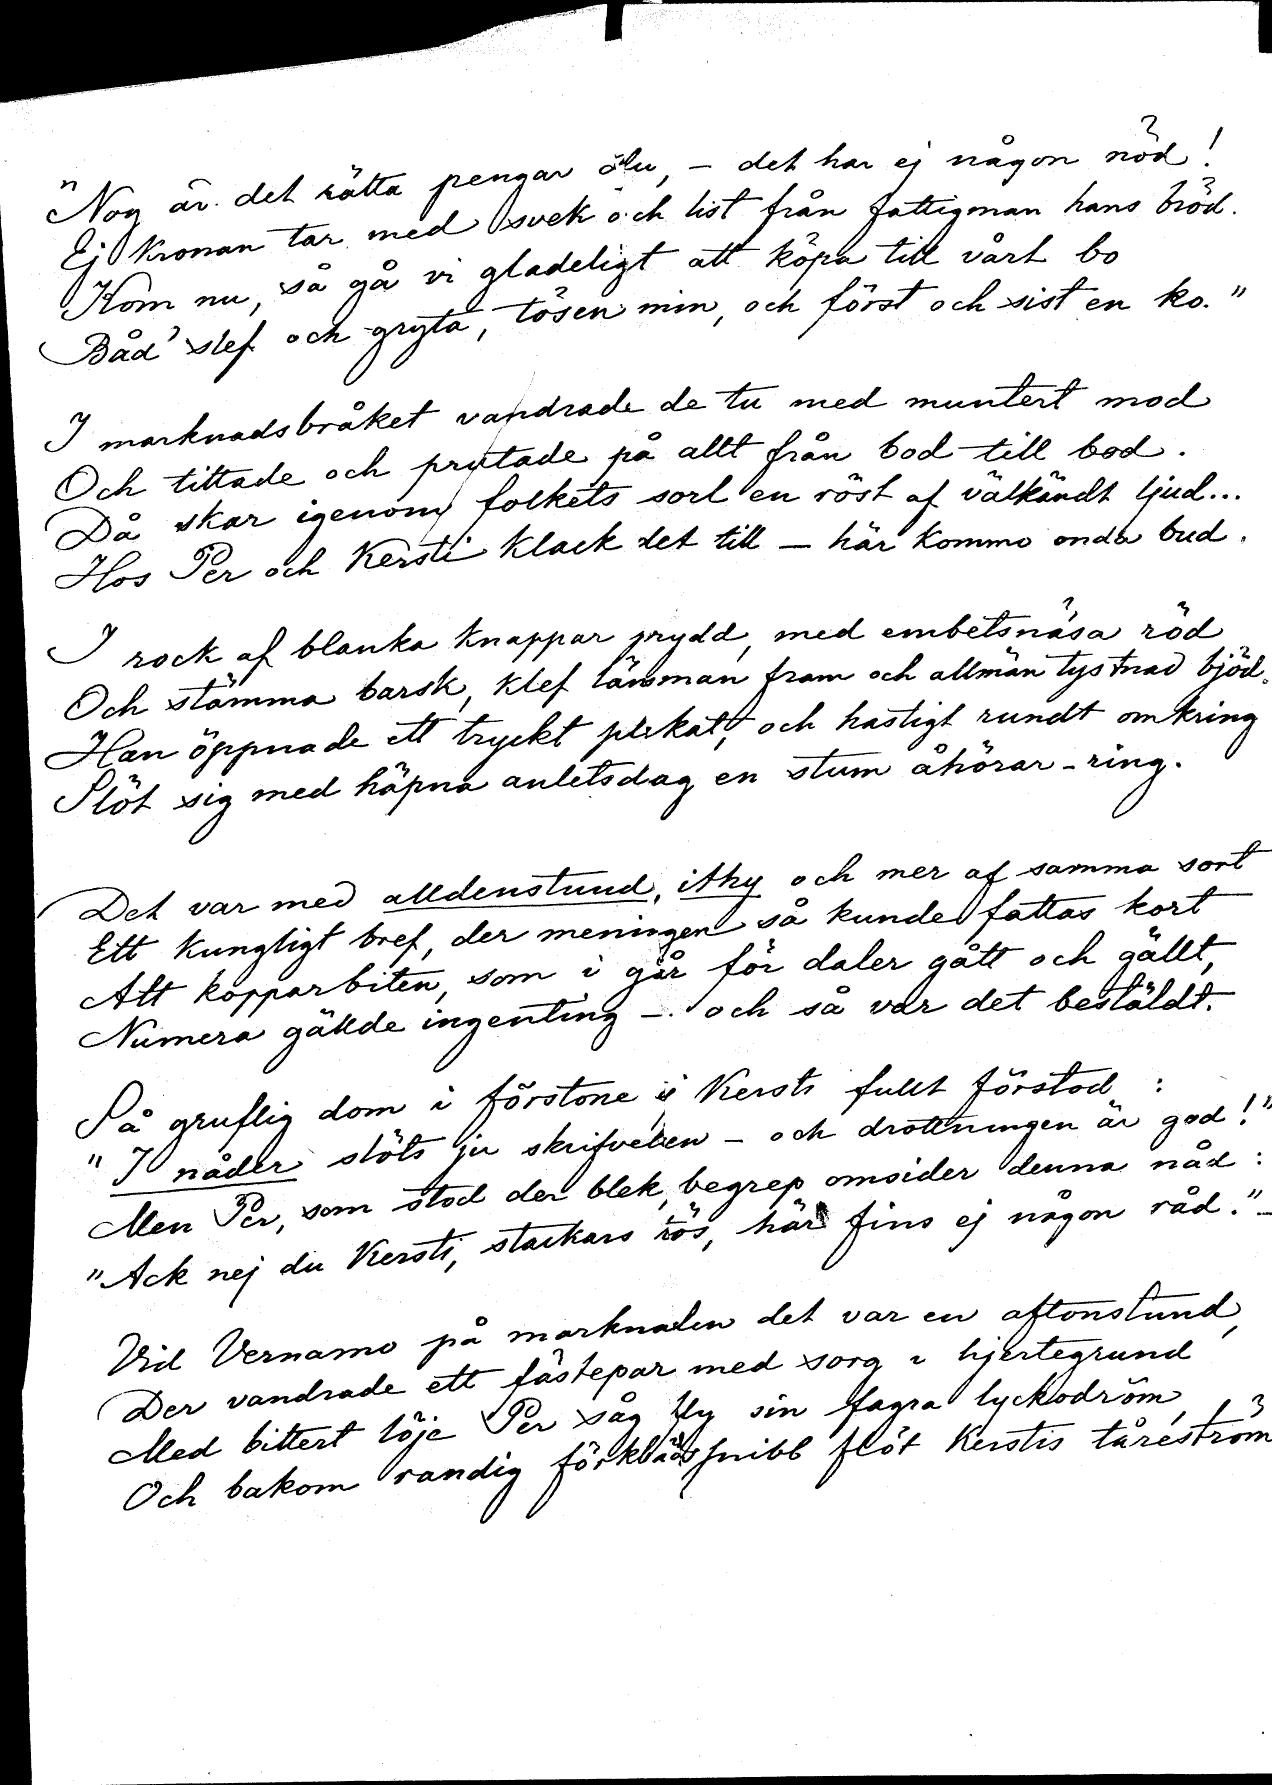 "Nog är det rätta pengar än, – det har ej någon nöd!
Ej Kronan tar med svek och list från fattigman hans bröd.
Kom nu, så gå vi gladeligt att köpa till vårt bo
Båd' slef och gryta, tösen min, och först och sist en ko."
I marknadsbråket vandrade de tu med muntert mod
Och tittade och prutade på allt från bod till bod.
Då skar igenom folkets sorl en röst af välkändt ljud...
Hos Per och Kersti klack det till – här kommo onda bud.
I rock af blanka knappar prydd, med embetsnäsa röd
Och stämma barsk, klef länsman fram och allmän tystnad bjöd.
Han öppnade ett tryckt plakat, och hastigt rundt omkring
Slöt sig med häpna anletsdag en stum åhörar-ring.
Det var med alldenstund, ithy och mer af samma sort
Ett kungligt bref, der meningen så kunde fattas kort
Att kopparbiten, som i går för daler gått och gällt,
Numera gällde ingenting – och så var det bestäldt.
Så gruflig dom i förstone ej Kersti fullt förstod:
"I nåder slöts ju skrifvelsen – och drottningen är god!"
Men Per, som stod der blek, begrep omsider denna nåd:
"Ack nej du Kersti, stackars tös, här fins ej någon råd."–
Vid Vernamo på marknaden det var en aftonstund,
Der vandrade ett fästepar med sorg i hjertegrund
Med bittert löje Per såg fly sin fagra lyckodröm,
Och bakom randig förklädssnibb flöt Kerstis tåreström